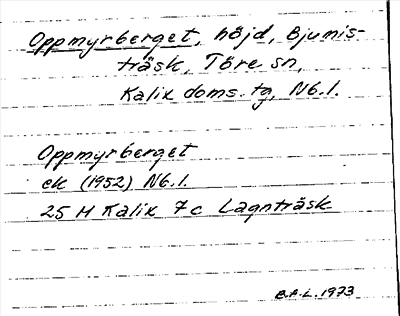 Oppmyrberget, höjd, Bjumis-
träsk, Töre sn,
Kalix doms. tg, Nb. l.
Oppmyrberget
ek (1952) Nb. l.
25 M Kalix 7c Lagnträsk
B.F.L. 1973